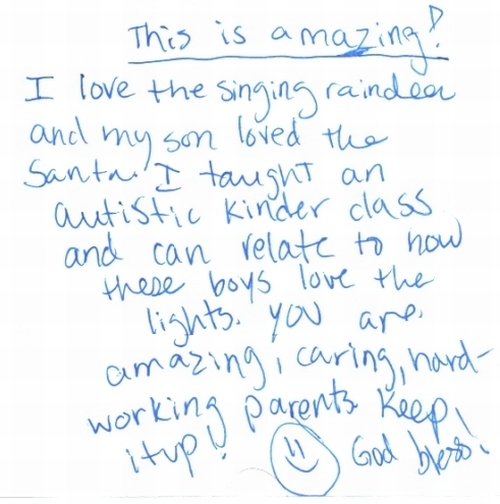 This is amazing!
I love the singing raindeer
and my son loved the
Santa. I taught an
autistic kinder class
and can relate to how
these boys love the
lights. you are
amazing, caring, hard-
working parents. Keep
it up! God bless!